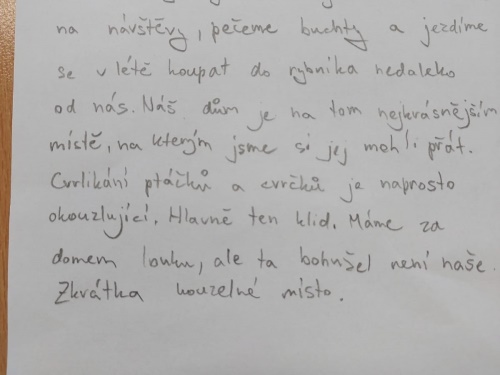 na návštěvy, pečeme buchty a jezdíme
se v létě koupat do rybníka nedaleko
od nás. Náš dům je na tom nejkrásnějším
místě, na kterým jsme si jej mohli přát.
Cvrlikání ptáčků a cvrčků je naprosto
okouzlující. Hlavně ten klid. Máme za
domem louku, ale ta bohužel není naše.
Zkrátka kouzelné místo.